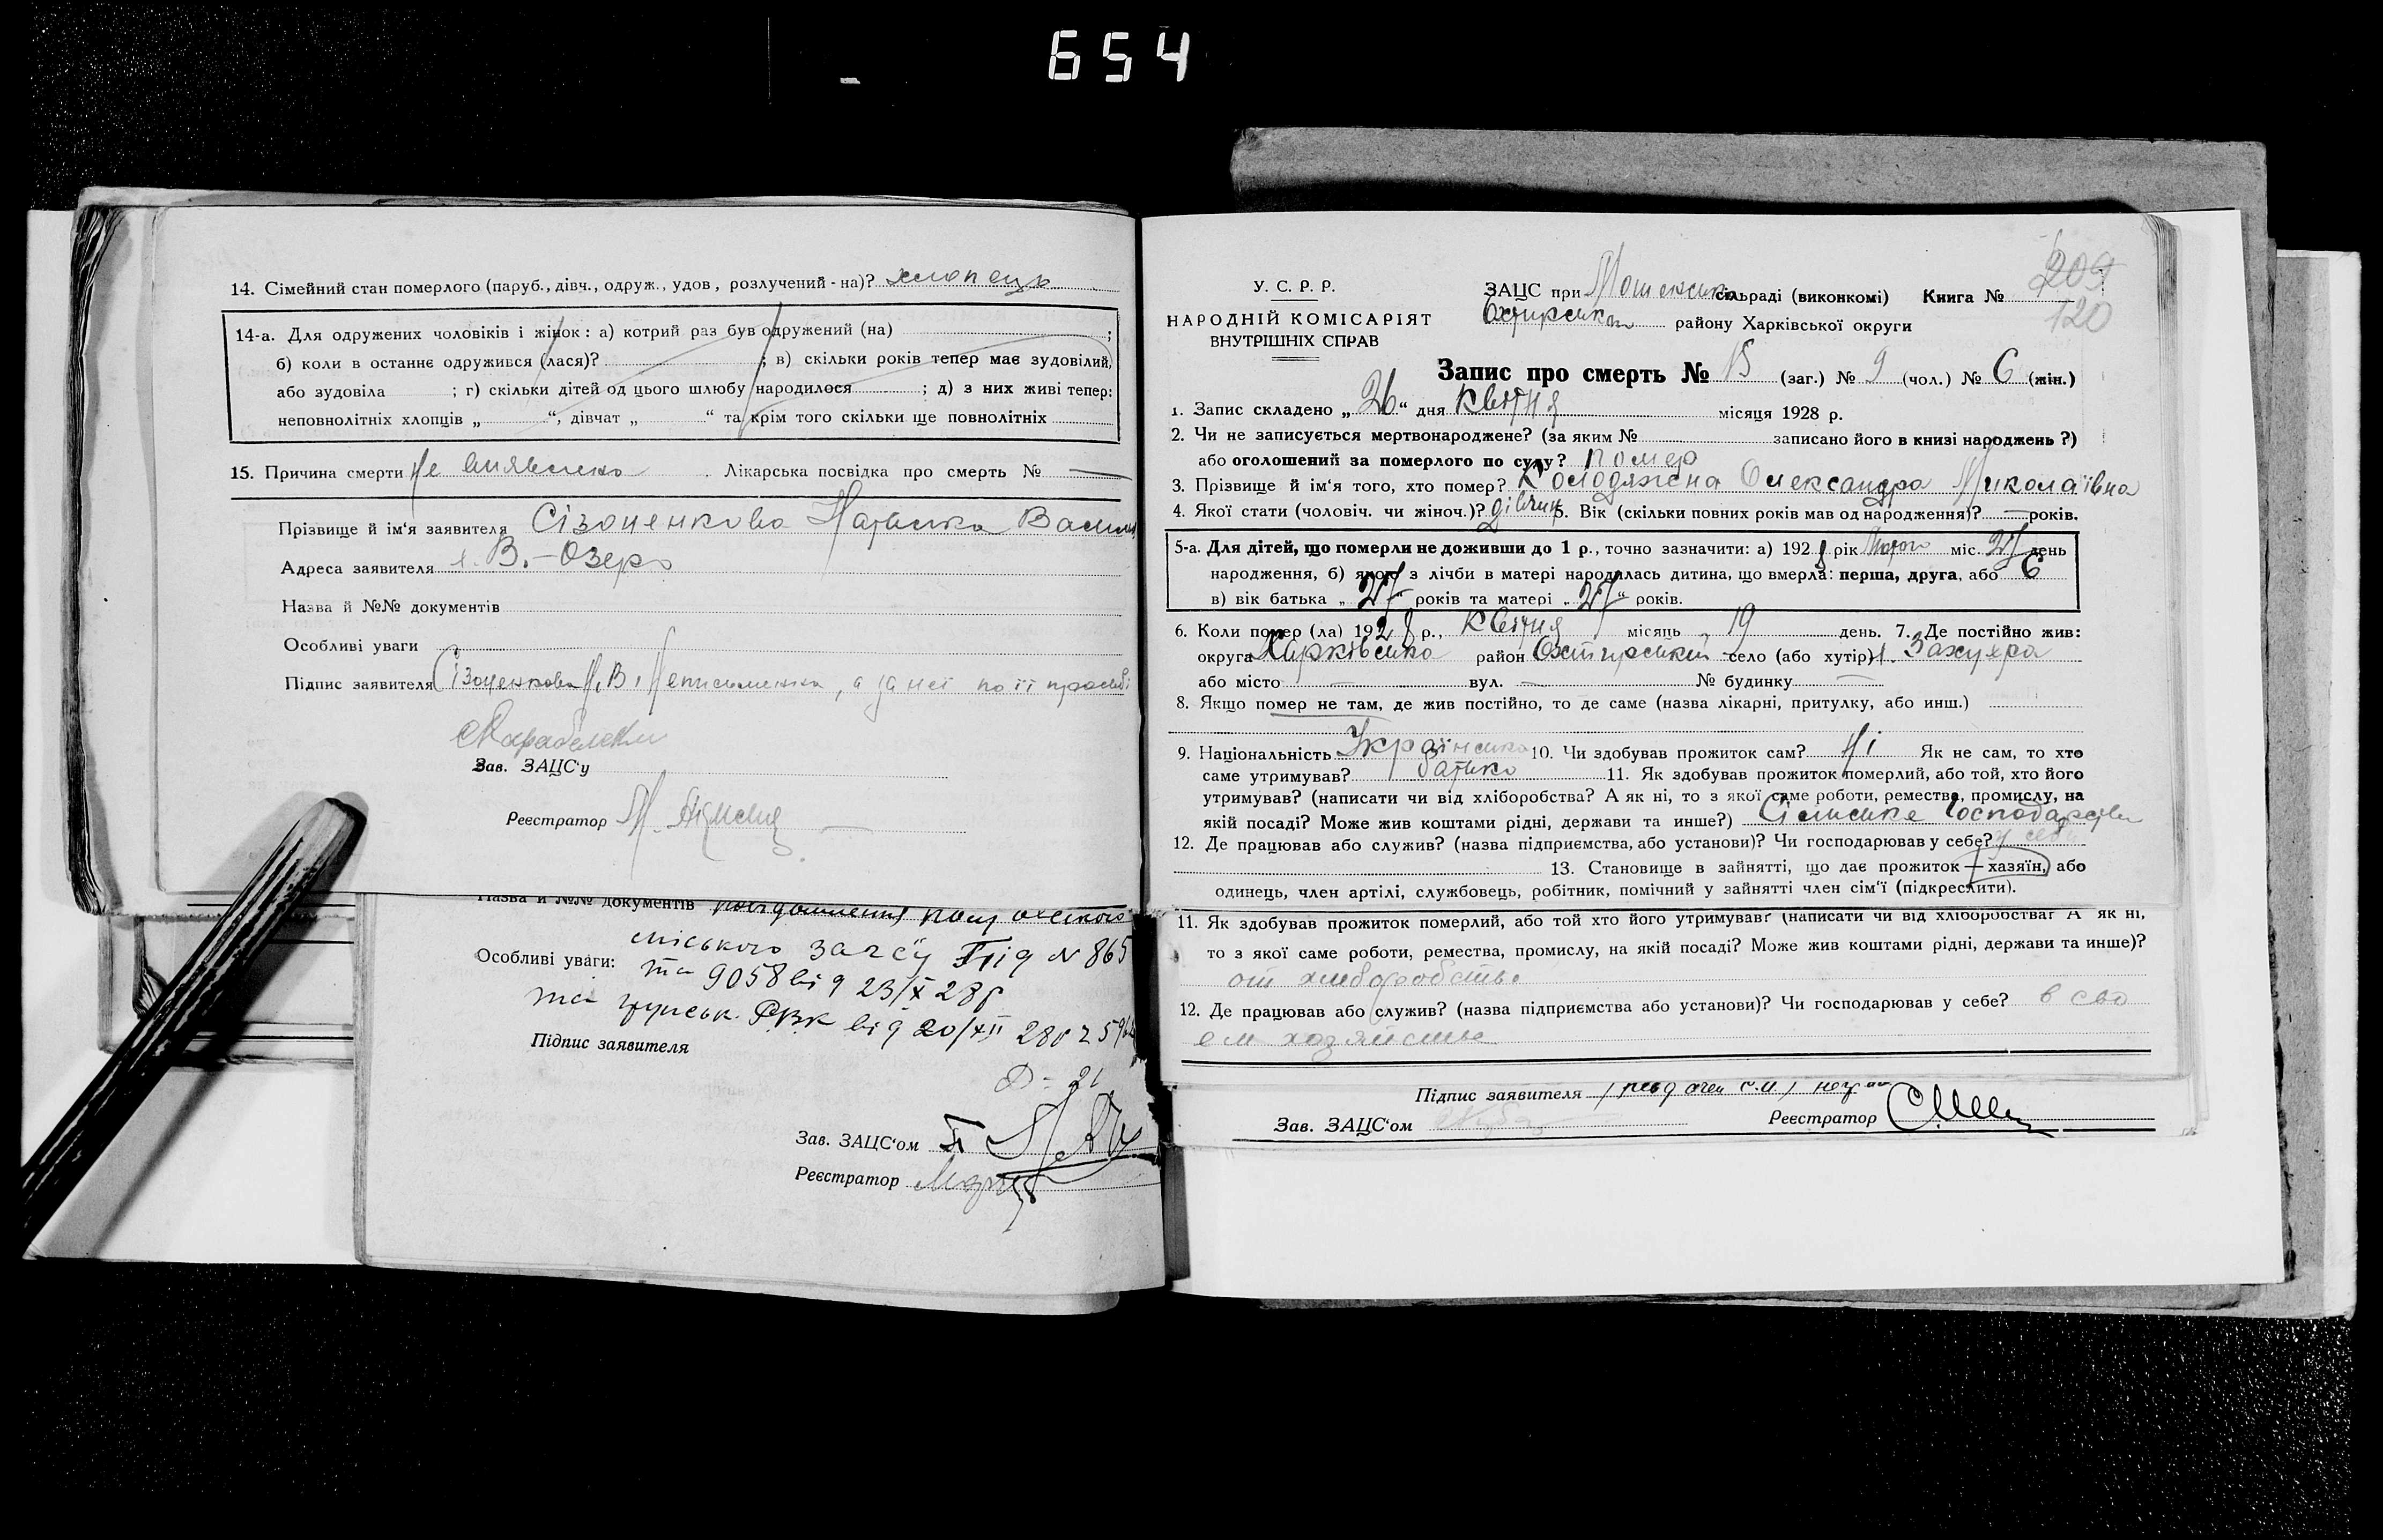 654
14. Сімейний стан померлого (паруб., дівч., одруж., удов, розлучений - на)? хлопець
14-а. Для одружених чоловіків і жінок: а) котрий раз був одружений (на) ;
б) коли в останнє одружився (лася)? ; в) скільки років тепер має зудовілий,
або зудовіла ; г) скільки дітей од цього шлюбу народилося ; д) з них живі тепер:
неповнолітніх хлопців „ “, дівчат „ “ та крім того скільки ще повнолітніх
15. Причина смерти Не виявлено . Лікарська посвідка про смерть № —
Прізвище й ім‘я заявителя Сізоненкова Наталка Васил
Адреса заявителя х. В.-Озеро
Назва й №№ документів
Особливі уваги
Підпис заявителя Сізоненкова Н. В. Неписьменна, а за неї по її просьбі
Зав. ЗАЦС‘у
Реєстратор
Назва й №№ документів
міського загсу під № 865
Особливі уваги: та 9058 від 23/X 28р
та РВК від 20/XII 28р
Підпис заявителя
Зав. ЗАЦС‘ом
Реєстратор
У. С. Р. Р.
НАРОДНІЙ КОМІСАРІЯТ
ВНУТРІШНІХ СПРАВ
209
120
ЗАЦС при сільраді (виконкомі) Книга №
Охтирськом району Харківської округи
Запис про смерть № 15 (заг.) № 9 (чол.) № 6 (жін.)
1. Запис складено „ 26 “ дня Квітня місяця 1928 р.
2. Чи не записується мертвонароджене? (за яким № записано його в книзі народжень?)
або оголошений за померлого по суду? помер
3. Прізвище й ім‘я того, хто помер? Колодяжна Олександра Миколаївна
4. Якої стати (чоловіч. чи жіноч.)? дівчин 5. Вік (скільки повних років мав од народження)? — років.
5-а. Для дітей, що померли не доживши до 1 р., точно зазначити: а) 1928 рік Лютого міс. 27 день
народження, б) якою з лічби в матері народилась дитина, що вмерла: перша, друга, або 6
в) вік батька „ 27 “ років та матері „ 27 “ років.
6. Коли помер (ла) 1928 р., Квітня місяць 19 день. 7. Де постійно жив:
округа Харківська район Охтирський село (або хутір)
або місто — вул. — № будинку —
8. Якщо помер не там, де жив постійно, то де саме (назва лікарні, притулку, або инш.)
9. Національність Українська 10. Чи здобував прожиток сам? Ні Як не сам, то хто
саме утримував? батько 11. Як здобував прожиток померлий, або той, хто його
утримував? (написати чи від хліборобства? А як ні, то з якої саме роботи, ремества, промислу, на
якій посаді? Може жив коштами рідні, держави та инше?) Сільське Господарство
12. Де працював або служив? (назва підприємства, або установи)? Чи господарював у себе? у себе
13. Становище в зайнятті, що дає прожиток — хазяїн, або
одинець, член артілі, службовець, робітник, помічний у зайнятті член сім‘ї (підкреслити).
11. Як здобував прожиток померлий, або той хто його утримував? (написати чи від хліборобства? А як ні,
то з якої саме роботи, ремества, промислу, на якій посаді? Може жив коштами рідні, держави та инше)?
от хлеборобства
12. Де працював або служив? (назва підприємства або установи)? Чи господарював у себе? в сво
ем хозяйстве
Підпис заявителя
Зав. ЗАЦС‘ом Реєстратор